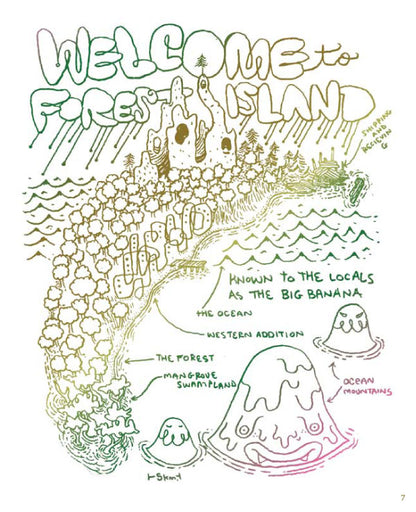 WELCOME to
FOREST ISLAND
SHIPPING
AND
RECIEVIN
G
KNOWN TO THE LOCALS
AS THE BIG BANANA
THE OCEAN
WESTERN ADDITION
THE FOREST
MANGROVE
SWAMPLAND
OCEAN
MOUNTAINS
1 Skm.
7